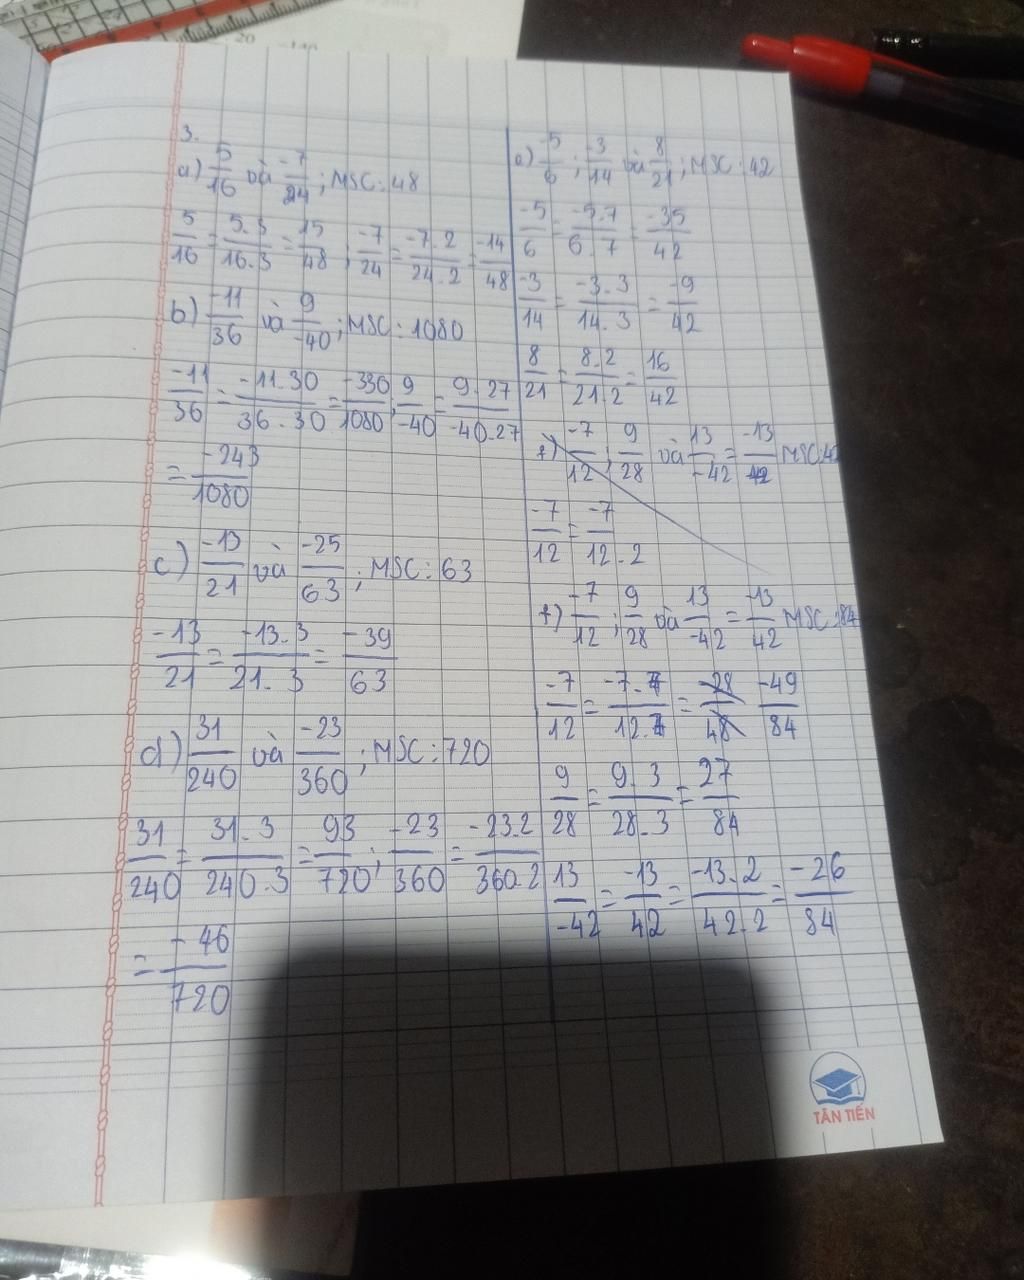 20
3.
a) 5/16 và -7/24 ; MSC: 48
5/16 = 5.3/16.3 = 15/48 ; -7/24 = -7.2/24.2 = -14/48
b) -11/36 và 9/-40 ; MSC: 1080
-11/36 = -11.30/36.30 = -330/1080 ; 9/-40 = 9.27/-40.27
= -243/1080
c) -13/21 và -25/63 ; MSC: 63
-13/21 = -13.3/21.3 = -39/63
d) 31/240 và -23/360 ; MSC: 720
31/240 = 31.3/240.3 = 93/720 ; -23/360 = -23.2/360.2
= -46/720
e) -5/6 ; -3/14 và 8/21 ; MSC: 42
-5/6 = -5.7/6.7 = -35/42
-3/14 = -3.3/14.3 = -9/42
8/21 = 8.2/21.2 = 16/42
f) -7/12 ; 9/28 và 13/-42 = -13/42 MSC:
-7/12 = -7/12.2
f) -7/12 ; 9/28 và 13/-42 = -13/42 MSC: 84
-7/12 = -7.7/12.7 = -28/48 -49/84
9/28 = 9.3/28.3 = 27/84
13/-42 = -13/42 = -13.2/42.2 = -26/84
TÂN TIẾN